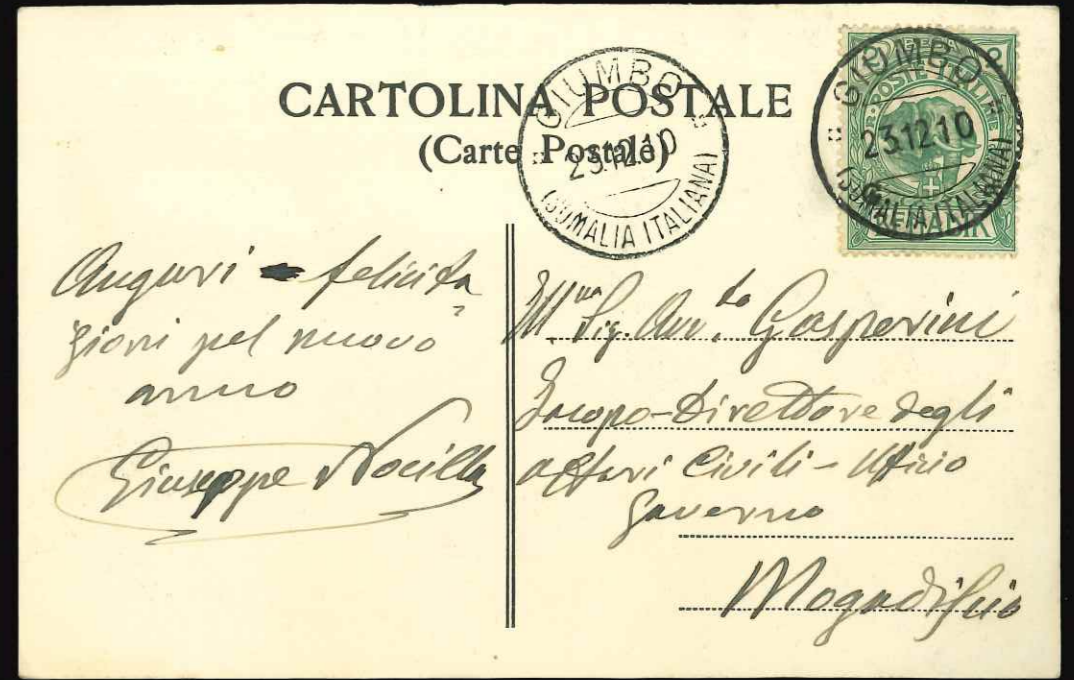 CARTOLINA POSTALE
(Carte Postale)
GIUMBO
23.12.10
(SOMALIA ITALIANA)
GIUMBO
23.12.10
(SOMALIA ITALIANA)
BESA
POSTE ITALIANE
Auguri felicita
zioni pel nuovo
anno
Giuseppe Nocilla
Sig. Gasperini
Jacopo - Direttore degli
affari Civili - Ufficio
Governo
Mogadiscio